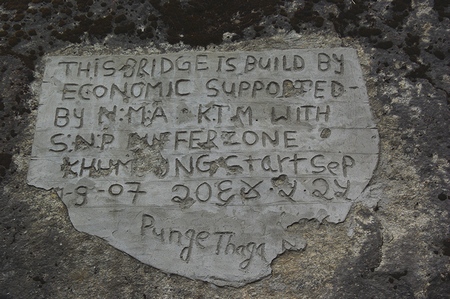 THIS BRIDGE IS BUILD BY
ECONOMIC SUPPORTED
BY N.M.A KTM. WITH
S.N.P BUFFERZONE
KHUMJUNG START SEP
-9-07
Punge Thaga